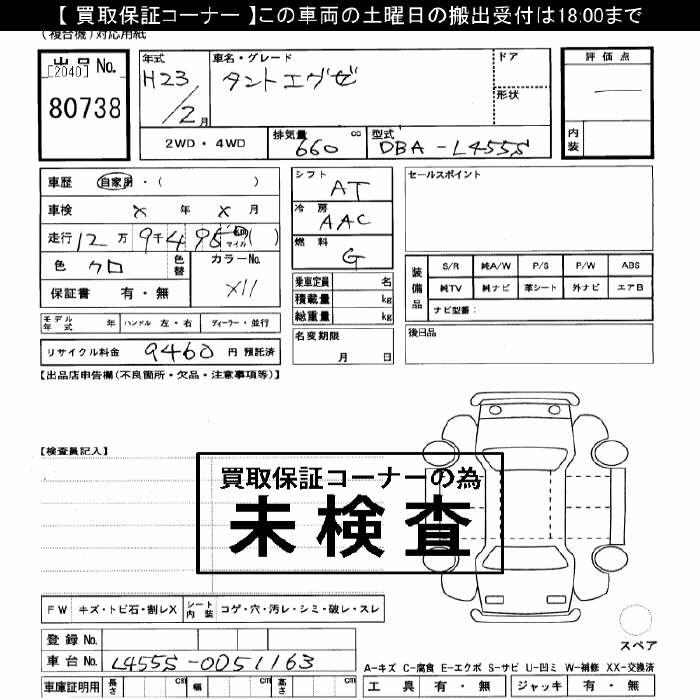 【 買取保証コーナー 】この車両の土曜日の搬出受付は18:00まで
(複合機)対応用紙
出品No.
[2040]
80738
年式
H23/2月
車名・グレード
タントエグゼ
ドア
形状
評価点
内装
2WD・4WD
排気量 660 cc
型式 DBA-L455S
車歴 自家用・( )
車検 × 年 × 月
走行 12万9千495 km マイル ( )
色 クロ
色替
カラーNo. X11
保証書 有・無
シフト AT
冷房 AAC
燃料 G
乗車定員 名
積載量 kg
総重量 kg
セールスポイント
装備品
S/R 純A/W P/S P/W ABS
純TV 純ナビ 革シート 外ナビ エアB
ナビ型番:
モデル年式 年 ハンドル 左・右 ディーラー・並行
リサイクル料金 9460 円 預託済
名変期限 月 日
後日品
【出品店申告欄(不良箇所・欠品・注意事項等)】
【検査員記入】
買取保証コーナーの為
未検査
FW キズ・トビ石・割レX シート内装 コゲ・穴・汚レ・シミ・破レ・スレ
登録No.
車台No. L455S-0051163
車庫証明用 長さ cm 幅 cm 高さ cm
スペア
A-キズ C-腐食 E-エクボ S-サビ U-凹ミ W-補修 XX-交換済
工具 有・無 ジャッキ 有・無